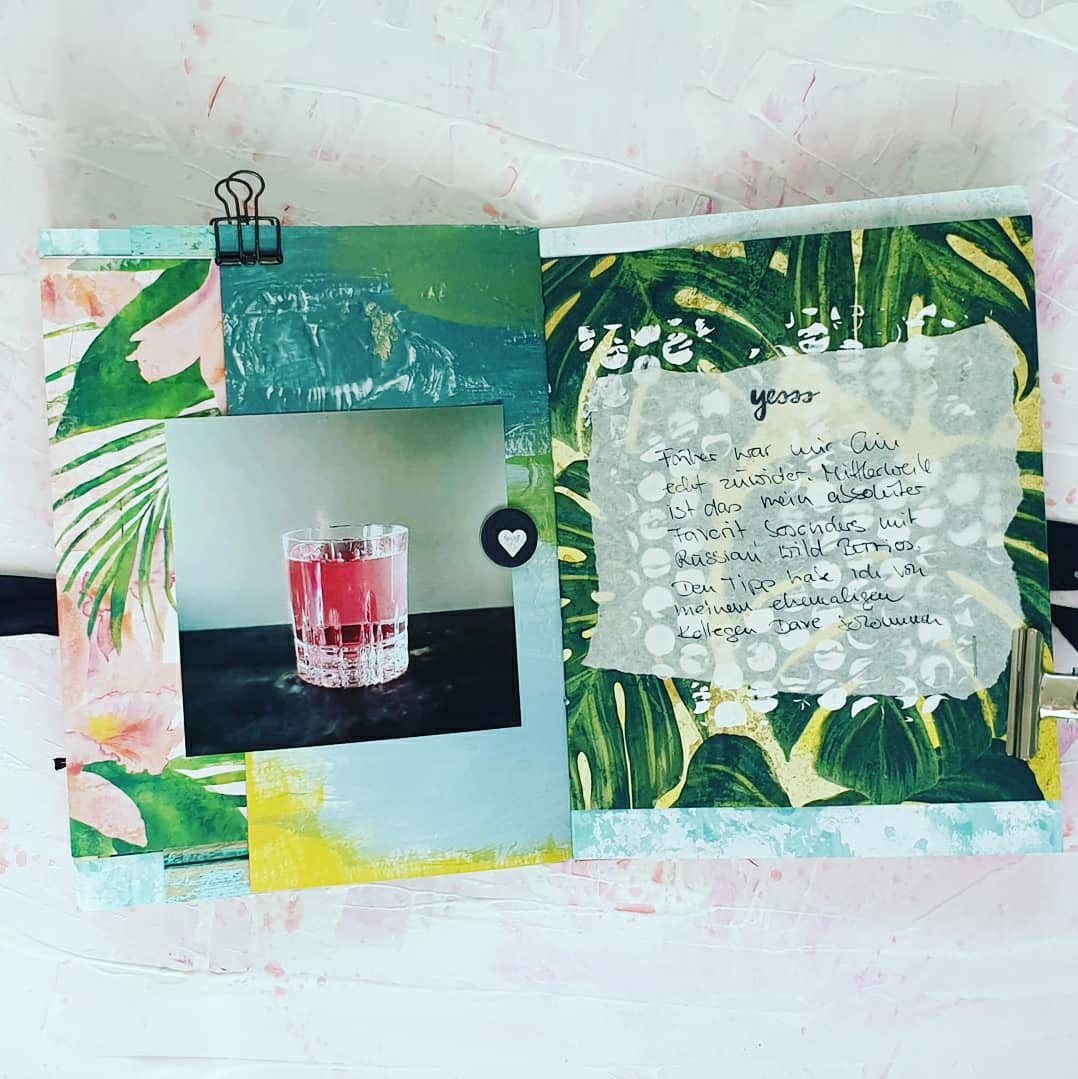 yesss
Früher war mir Gin
echt zuwider. Mittlerweile
ist das mein absoluter
Favorit, besonders mit
Russian Wild Berries.
Den Tipp habe ich von
meinem ehemaligen
Kollegen Dave